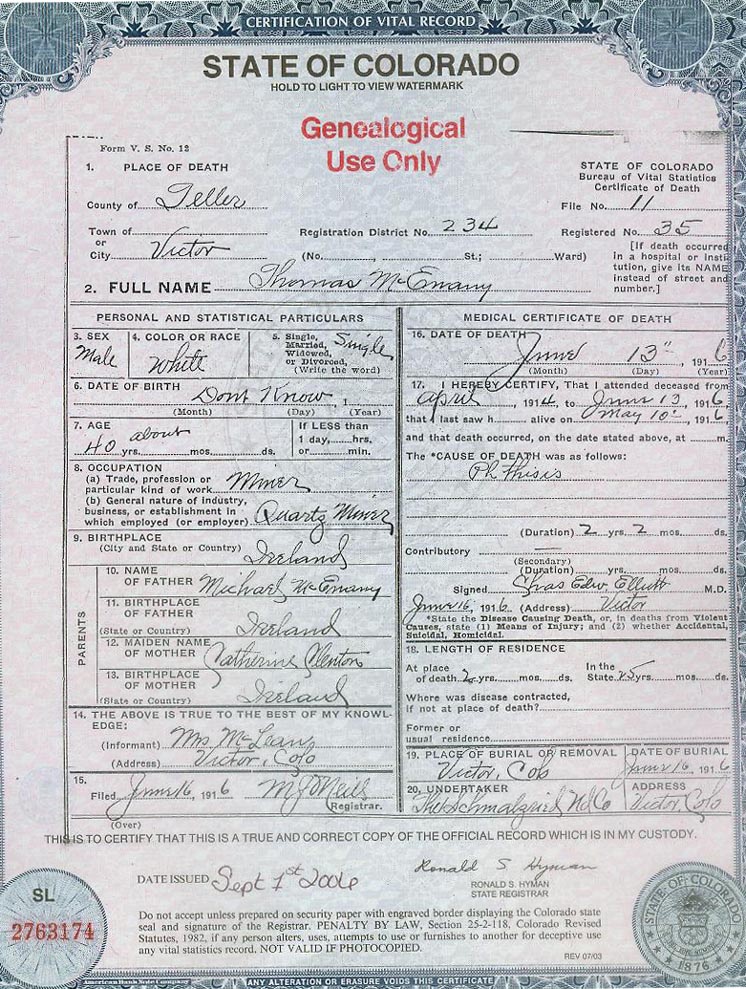 CERTIFICATION OF VITAL RECORD
STATE OF COLORADO
HOLD TO LIGHT TO VIEW WATERMARK
Genealogical
Use Only
Form V. S. No. 12
STATE OF COLORADO
Bureau of Vital Statistics
Certificate of Death
1. PLACE OF DEATH
County of Teller
File No. 11
Town of
or
City Victor
Registration District No. 234
Registered No. 35
(No. St.; Ward)
[If death occurred
in a hospital or Insti
tution, give its NAME
instead of street and
number.]
2. FULL NAME Thomas McEnany
PERSONAL AND STATISTICAL PARTICULARS
3. SEX
Male
4. COLOR OR RACE
White
5. Single,
Married,
Widowed,
or Divorced,
(Write the word)
Single
6. DATE OF BIRTH
Dont Know, 1
(Month) (Day) (Year)
7. AGE
about
40 yrs. mos. ds.
If LESS than
1 day, hrs.
or min.
8. OCCUPATION
(a) Trade, profession or
particular kind of work Miner
(b) General nature of industry,
business, or establishment in
which employed (or employer) Quartz Miner
9. BIRTHPLACE
(City and State or Country) Ireland
PARENTS
10. NAME
OF FATHER Michael McEnany
11. BIRTHPLACE
OF FATHER
(State or Country) Ireland
12. MAIDEN NAME
OF MOTHER Catherine
13. BIRTHPLACE
OF MOTHER
(State or Country) Ireland
14. THE ABOVE IS TRUE TO THE BEST OF MY KNOWL-
EDGE:
(Informant) Mrs McLean
(Address) Victor, Colo
15.
Filed June 16, 1916 M J O'Neill
Registrar.
(Over)
MEDICAL CERTIFICATE OF DEATH
16. DATE OF DEATH
June 13", 1916
(Month) (Day) (Year)
17. I HEREBY CERTIFY, That I attended deceased from
April, 1914, to June 13, 1916
that I last saw h alive on May 10", 1916,
and that death occurred, on the date stated above, at m.
The *CAUSE OF DEATH was as follows:
Phthisis
(Duration) 2 yrs. 2 mos. ds.
Contributory —
(Secondary)
(Duration) yrs. mos. ds.
Signed Chas Edw Elliott M.D.
June 16, 1916 (Address) Victor
*State the Disease Causing Death, or, in deaths from Violent
Causes, state (1) Means of Injury; and (2) whether Accidental,
Suicidal, Homicidal.
18. LENGTH OF RESIDENCE
At place
of death 2 yrs. mos. ds.
In the
State 25 yrs. mos. ds.
Where was disease contracted,
if not at place of death?
Former or
usual residence
19. PLACE OF BURIAL OR REMOVAL
Victor, Colo
DATE OF BURIAL
June 16, 1916
20. UNDERTAKER
ADDRESS
Victor Colo
THIS IS TO CERTIFY THAT THIS IS A TRUE AND CORRECT COPY OF THE OFFICIAL RECORD WHICH IS IN MY CUSTODY.
DATE ISSUED Sept 1st 2006
Ronald S. Hyman
RONALD S. HYMAN
STATE REGISTRAR
SL
2763174
Do not accept unless prepared on security paper with engraved border displaying the Colorado state
seal and signature of the Registrar. PENALTY BY LAW, Section 25-2-118, Colorado Revised
Statutes, 1982, if any person alters, uses, attempts to use or furnishes to another for deceptive use
any vital statistics record. NOT VALID IF PHOTOCOPIED.
REV 07/03
STATE OF COLORADO
1876
American Bank Note Company
ANY ALTERATION OR ERASURE VOIDS THIS CERTIFICATE